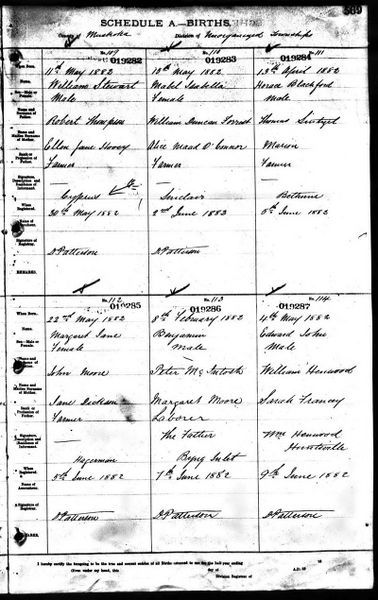 569
SCHEDULE A.—BIRTHS.
County of Muskoka Division of Unorganized Townships
No. 109 No. 110 No. 111
019282 019283 019284
When Born. 11th May 1882 18th May 1882 13th April 1882
Name. William Stewart Mabel Isabella Horace Blackford
Sex—Male or Female. Male Female Male
Name and Surname of Father. Robert Thompson William Duncan Forrest Thomas
Name and Maiden Surname of Mother. Ellen Jane Alice Maud O'Connor Marion
Rank or Profession of Father. Farmer Farmer Farmer
Signature, Description and Residence of Informant.
Cyprus Sinclair Bethune
When Registered. 30th May 1882 2nd June 1883 5th June 1883
Name of Accoucheur.
Signature of Registrar. D Patterson D Patterson
REMARKS.
No. 112 No. 113 No. 114
019285 019286 019287
When Born. 22nd May 1882 8th February 1882 4th May 1882
Name. Margaret Jane Benjamin Edward John
Sex—Male or Female. Female Male Male
Name and Surname of Father. John Moore Peter McIntosh William Henwood
Name and Maiden Surname of Mother. Jane Dickson Margaret Moore Sarah Francey
Rank or Profession of Father. Farmer Laborer
Signature, Description and Residence of Informant. — The Father Wm Henwood
Hagerman Byng Inlet Huntsville
When Registered. 5th June 1882 7th June 1882 9th June 1882
Name of Accoucheur.
Signature of Registrar. D Patterson D Patterson D Patterson
REMARKS.
I hereby certify the foregoing to be the true and correct entries of all Births returned to me for the half-year ending
Given under my hand, this day of A.D. 18
Division Registrar of